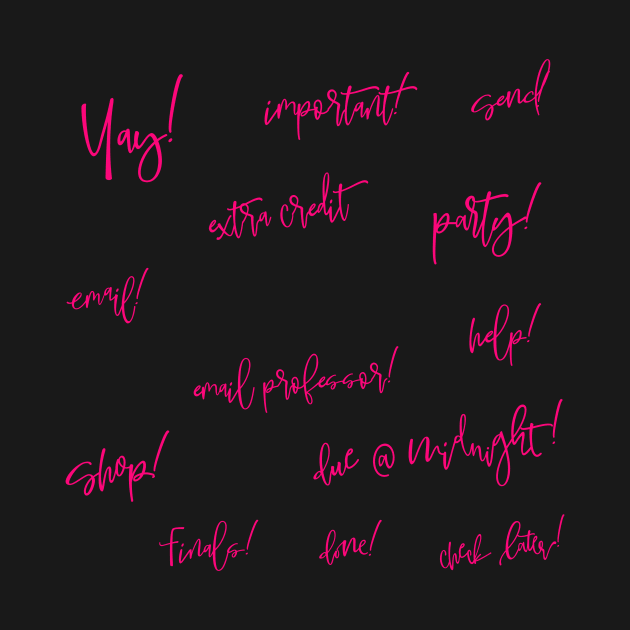 Yay!
important!
send
extra credit
party!
email!
help!
email professor!
shop!
due @ midnight!
Finals!
done!
check later!